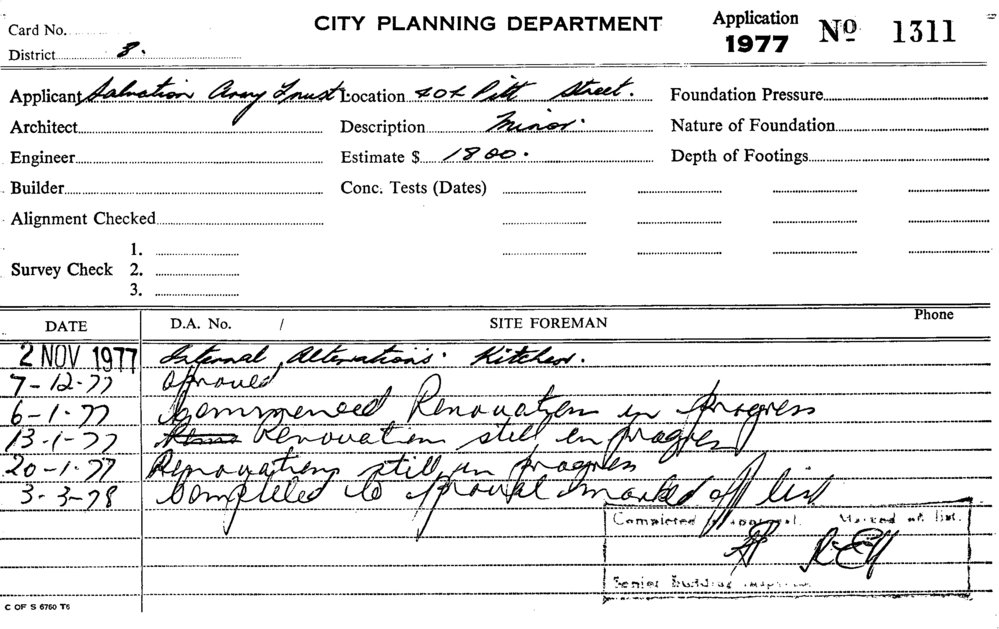 Card No.
CITY PLANNING DEPARTMENT
Application
1977
No 1311
District 8.
Applicant Salvation Army Trust Location 402 Pitt Street. Foundation Pressure
Architect Description Minor. Nature of Foundation
Engineer Estimate $ 1800. Depth of Footings
Builder Conc. Tests (Dates)
Alignment Checked
1.
Survey Check 2.
3.
DATE D.A. No. / SITE FOREMAN Phone
2 NOV 1977 Internal Alterations. Kitchen.
7-12-77 Aproved
6-1-77 Commenced Renovation in progress
13-1-77 Renovation still in progres
20-1-77 Renovations still in progress
3-3-78 Completed to aproval marked off list
Completed to approval. Marked off list.
Senior Building Inspector
C OF S 6760 T6